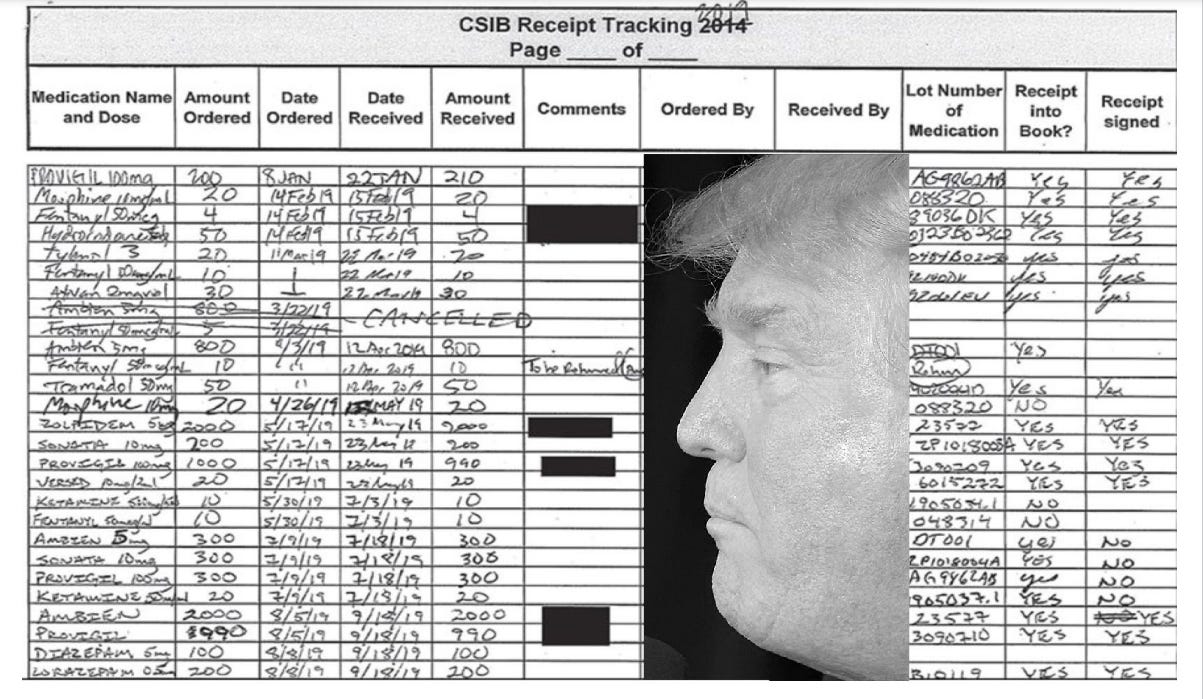 2019
CSIB Receipt Tracking 2014
Page ____ of ____
Medication Name and Dose Amount Ordered Date Ordered Date Received Amount Received Comments Ordered By Received By Lot Number of Medication Receipt into Book? Receipt signed
PROVIGIL 100mg 200 8 JAN 22 JAN 210 AG9862AB Yes Yes
Morphine 20 14 Feb 19 15 Feb 19 20 088320 Yes Yes
Fentanyl 50mcg 4 14 Feb 19 15 Feb 19 4 39036DK Yes Yes
50 14 Feb 19 15 Feb 19 50 Yes Yes
Tylenol 3 20 11 Mar 19 22 Mar 19 20 yes yes
Fentanyl 10 22 Mar 19 10 yes yes
Ativan 30 22 March 30 yes yes
Ambien 5mg 800 3/22/19 CANCELLED
Fentanyl 50mcg/mL 5 3/22/19
Ambien 5mg 800 4/3/19 12 Apr 2019 800 DT001 Yes
Fentanyl 50mcg/mL 10 " 12 Apr 2019 10 To be Returned
Tramadol 50mg 50 " 12 Apr 2019 50 Yes Yes
Morphine 10mg 20 4/26/19 MAY 19 20 088320 NO
ZOLPIDEM 5mg 2000 5/17/19 23 May 19 2000 23577 YES YES
SONATA 10mg 200 5/17/19 23 May 19 200 ZP1018008A YES YES
PROVIGIL 100mg 1000 5/17/19 23 May 19 990 3090209 YES YES
VERSED 20 5/17/19 20 6015272 YES YES
KETAMINE 10 5/30/19 7/3/19 10 1905034.1 NO
FENTANYL 50mcg/ml 10 5/30/19 7/3/19 10 048314 NO
AMBIEN 5mg 300 7/9/19 7/18/19 300 DT001 yes NO
SONATA 10mg 300 7/9/19 7/18/19 300 ZP1018004A YES NO
PROVIGIL 100mg 300 7/9/19 7/18/19 300 AG9862AB yes NO
KETAMINE 20 7/9/19 7/18/19 20 1905037.1 YES NO
AMBIEN 2000 8/5/19 9/18/19 2000 23577 YES NO YES
PROVIGIL 990 8/5/19 9/18/19 990 3090210 YES YES
DIAZEPAM 5mg 100 8/8/19 9/18/19 100
LORAZEPAM 0.5mg 200 8/8/19 9/18/19 200 B10119 YES YES